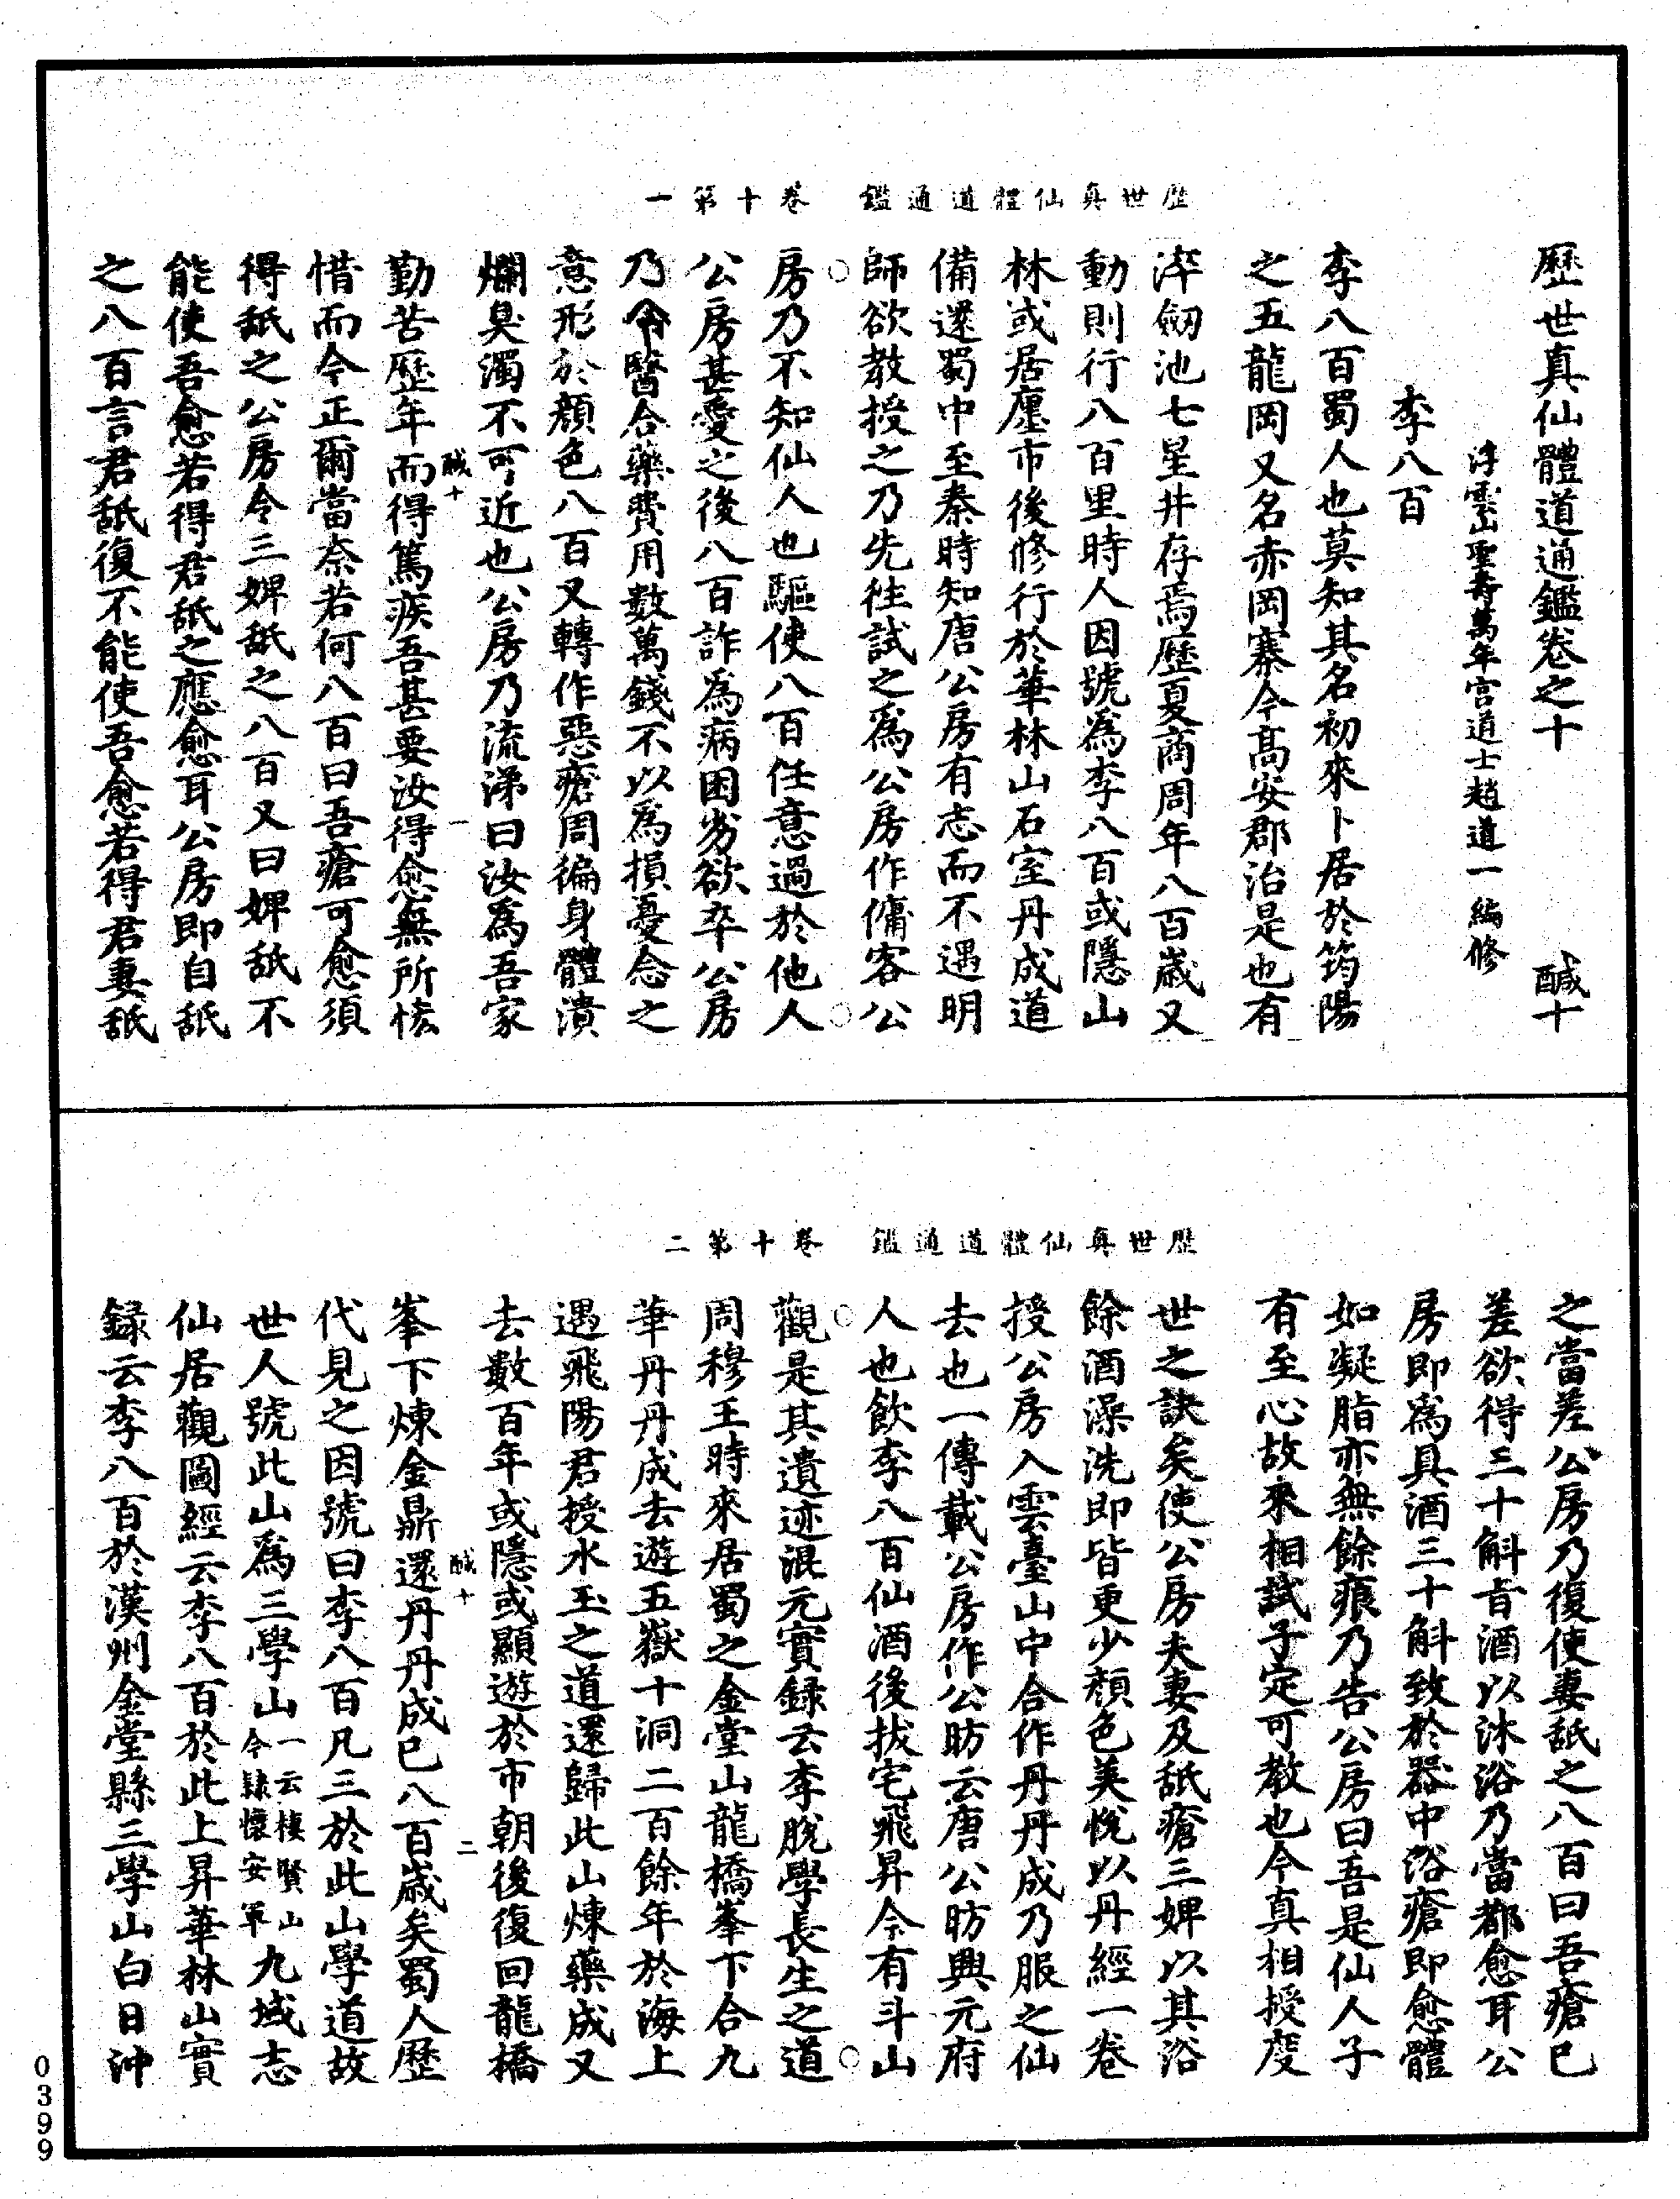 歷世真仙體道通鑑　卷十第一
歷世真仙體道通鑑卷之十　鹹十
浮雲山聖壽萬年宮道士趙道一編修
李八百
李八百蜀人也莫知其名初來卜居於筠陽
之五龍岡又名赤岡寨今高安郡治是也有
淬劒池七星井存焉歷夏商周年八百歲又
動則行八百里時人因號爲李八百或隱山
林或居廛市後修行於華林山石室丹成道
備還蜀中至秦時知唐公房有志而不遇明
師欲教授之乃先往試之爲公房作傭客公
房乃不知仙人也驅使八百任意過於他人
公房甚愛之後八百詐爲病困劣欲卒公房
乃令醫合藥費用數萬錢不以爲損憂念之
意形於顔色八百又轉作惡瘡周徧身體潰
爛臭濁不可近也公房乃流涕曰汝爲吾家
鹹十　一
勤苦歷年而得篤疾吾甚要汝得愈無所恡
惜而今正爾當奈若何八百曰吾瘡可愈須
得舐之公房令三婢舐之八百又曰婢舐不
能使吾愈若得君舐之應愈耳公房即自舐
之八百言君舐復不能使吾愈若得君妻舐
歷世真仙體道通鑑　卷十第二
之當差公房乃復使妻舐之八百曰吾瘡已
差欲得三十斛旨酒以沐浴乃當都愈耳公
房即爲具酒三十斛致於器中浴瘡即愈體
如凝脂亦無餘痕乃告公房曰吾是仙人子
有至心故來相試子定可教也今真相授度
世之訣矣使公房夫妻及舐瘡三婢以其浴
餘酒澡洗即皆更少顔色美悅以丹經一卷
授公房入雲臺山中合作丹丹成乃服之仙
去也一傳載公房作公昉云唐公昉興元府
人也飲李八百仙酒後拔宅飛昇今有斗山
觀是其遺迹混元實録云李脫學長生之道
周穆王時來居蜀之金堂山龍橋峯下合九
華丹丹成去遊五嶽十洞二百餘年於海上
遇飛陽君授水玉之道還歸此山煉藥成又
去數百年或隱或顯遊於市朝後復回龍橋
鹹十　二
峯下煉金鼎還丹丹成已八百歲矣蜀人歷
代見之因號曰李八百凡三於此山學道故
世人號此山爲三學山一云棲賢山今隸懷安軍九域志
仙居觀圖經云李八百於此上昇華林山實
録云李八百於漢州金堂縣三學山白日沖
0399